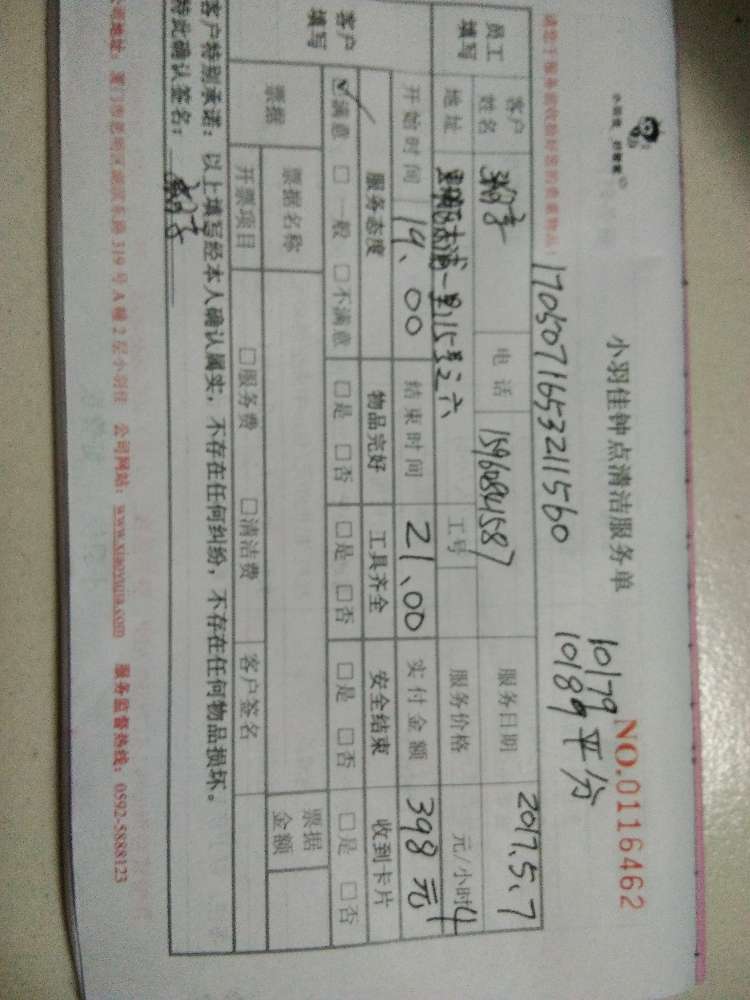 小羽佳钟点清洁服务单
小羽佳 好管家
NO.0116462
1705071653211560
10179
10189 平分
请您于服务前收好您的贵重物品！
员工填写
客户姓名
电话 15960841587
服务日期 2017.5.7
地址
里15号之六
工号
服务价格 元/小时
开始时间 19.00
结束时间 21.00
实付金额 398元
客户填写
服务态度 物品完好 工具齐全 安全结束 收到卡片
☑满意 □一般 □不满意 □是 □否 □是 □否 □是 □否 □是 □否
票据
票据名称
票据金额
开票项目 □服务费 □清洁费 客户签名
客户特别承诺：以上填写经本人确认属实，不存在任何纠纷，不存在任何物品损坏。
特此确认签名：
公司地址：厦门市思明区湖滨东路319号A幢2层小羽佳 公司网站：www.xiaoyujia.com 服务监督热线：0592-5888123